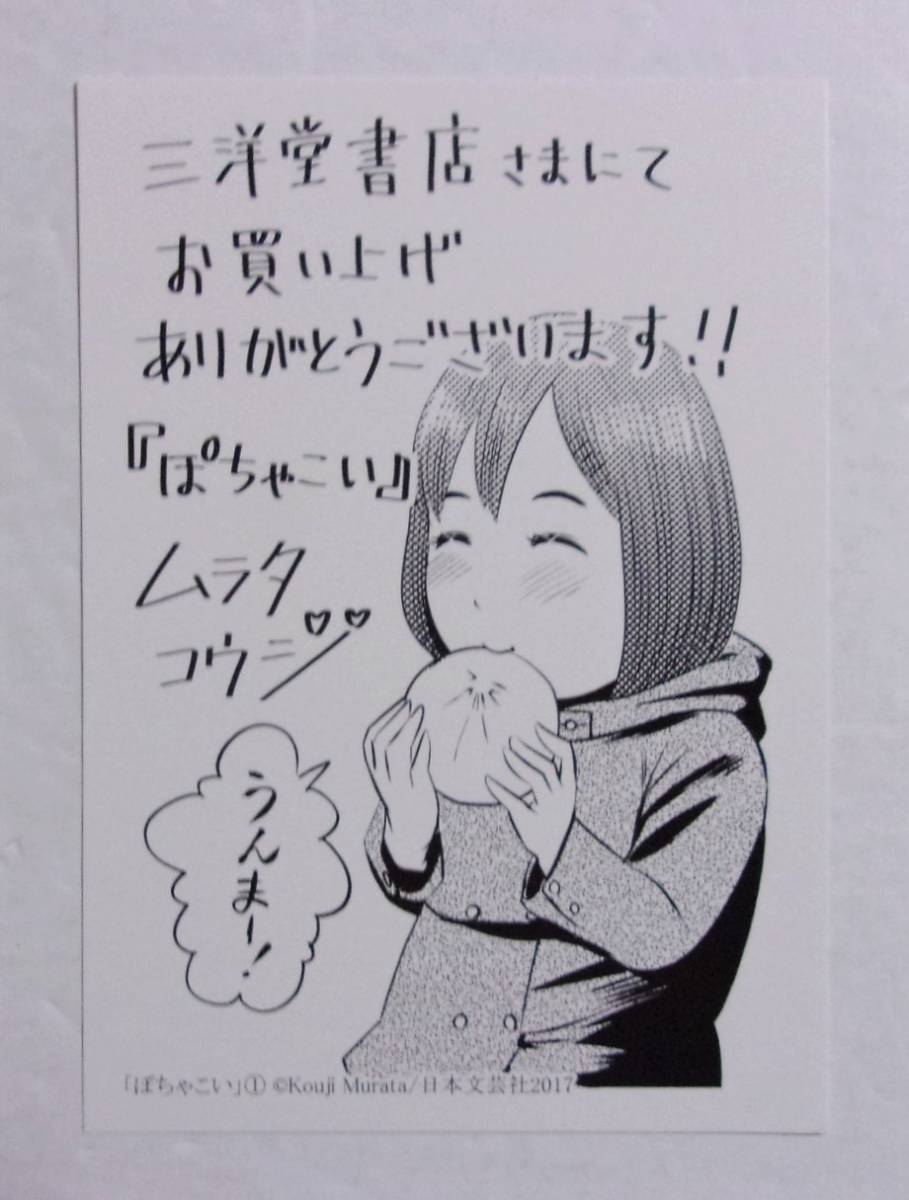 三洋堂書店さまにて
お買い上げ
ありがとうございます!!
『ぽちゃこい』
ムラタ
コウジ♡♡
うんまー!
「ぽちゃこい」① ©Kouji Murata/日本文芸社2017